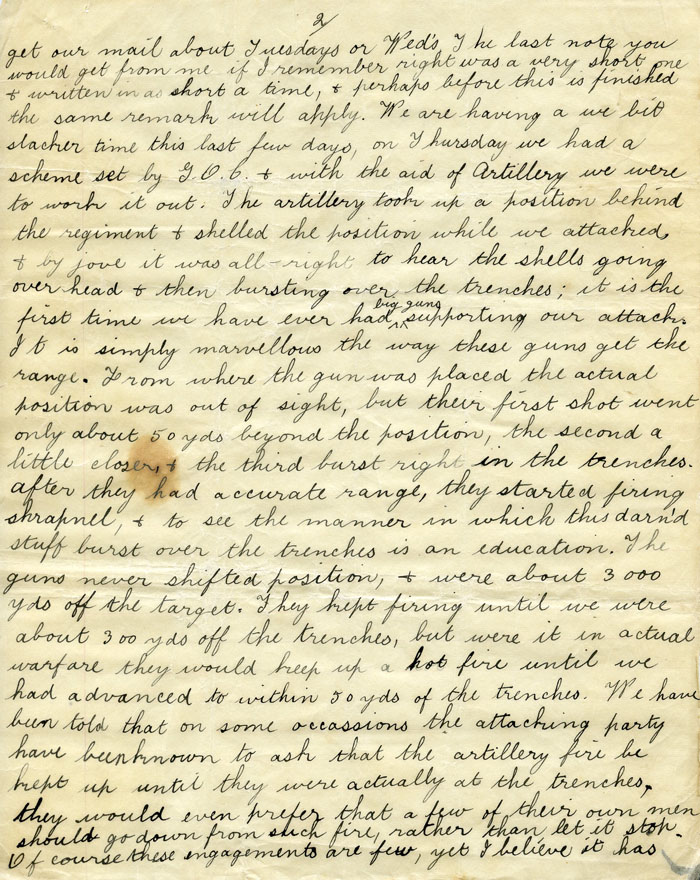 2/
get our mail about Tuesdays or Wed's. The last note you
would get from me if I remember right was a very short one
& written in as short a time, & perhaps before this is finished
the same remark will apply. We are having a we bit
slacker time this last few days, on Thursday we had a
scheme set by G.O.C. & with the aid of Artillery we were
to work it out. The artillery took up a position behind
the regiment & shelled the position while we attacked,
& by jove it was all-right to hear the shells going
over head & then bursting over the trenches; it is the
big guns
first time we have ever had ^ supporting our attack.
It is simply marvellous the way these guns get the
range. From where the gun was placed the actual
position was out of sight, but their first shot went
only about 50 yds beyond the position, the second a
little closer, & the third burst right in the trenches.
after they had accurate range, they started firing
shrapnel, & to see the manner in which this darn'd
stuff burst over the trenches is an education. The
guns never shifted position, & were about 3000
yds off the target. They kept firing until we were
about 300 yds off the trenches, but were it in actual
warfare they would keep up a hot fire until we
had advanced to within 50 yds of the trenches. We have
been told that on some occassions the attacking party
have been known to ask that the artillery fire be
kept up until they were actually at the trenches,
they would even prefer that a few of their own men
should go down from such fire, rather than let it stop.
Of course these engagements are few, yet I believe it has